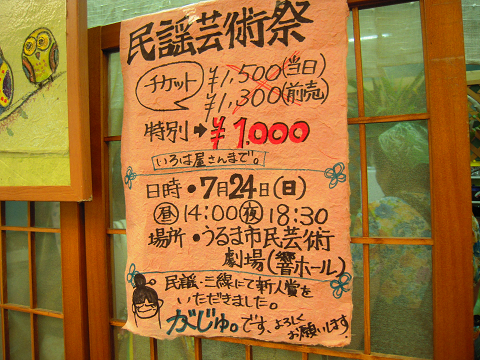 民謡芸術祭
チケット
¥1,500(当日)
¥1,300(前売)
特別→¥1,000
いろは屋さんまで。
日時・7月24日(日)
昼14:00夜18:30
場所・うるま市民芸術
劇場(響ホール)
民謡・三線にて新人賞を
いただきました。
がじゅ。です、よろしく
お願いします